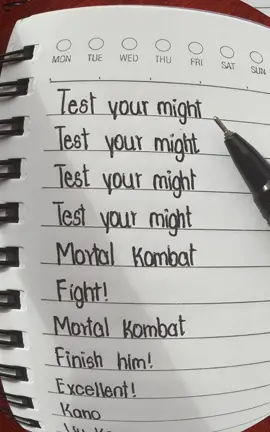 MON TUE WED THU FRI SAT SUN
Test your might
Test your might
Test your might
Test your might
Mortal Kombat
Fight!
Mortal Kombat
Finish him!
Excellent!
Kano